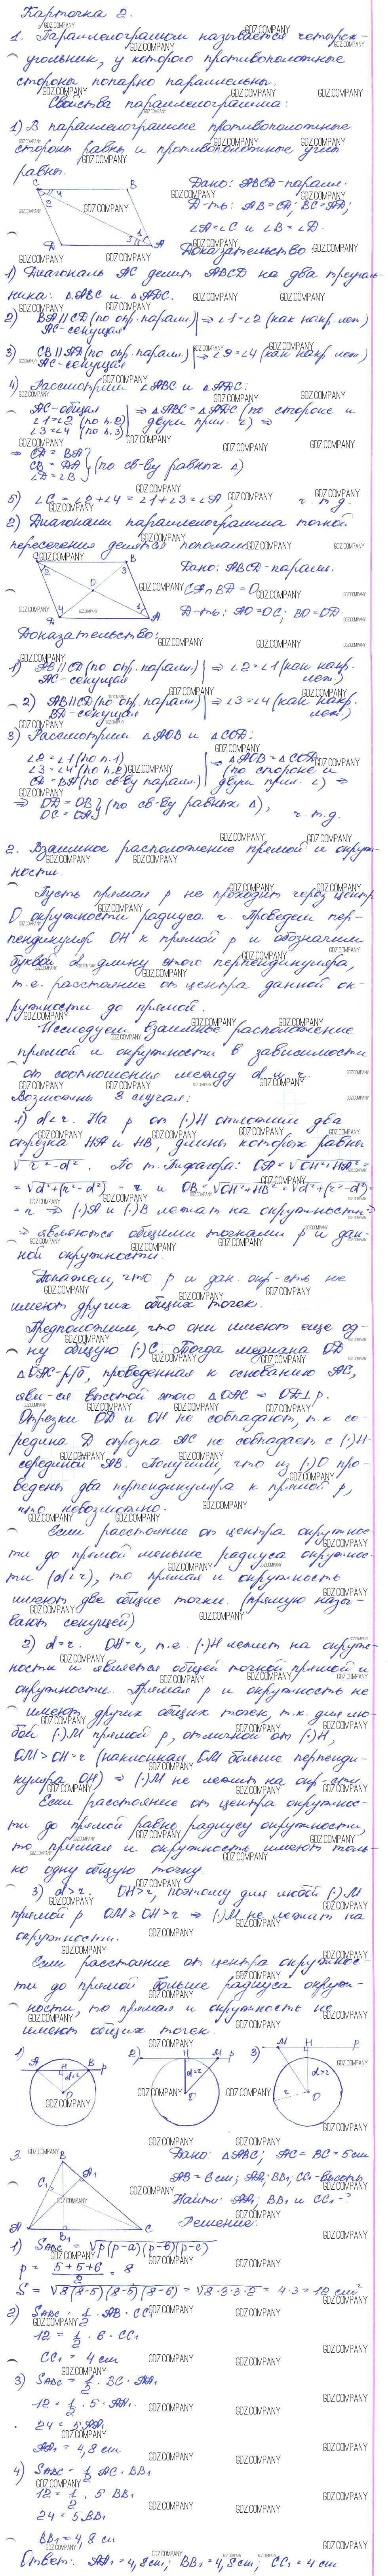 Карточка 2.
1. Параллелограммом называется четырех-
угольник, у которого противоположные
стороны попарно параллельны.
Свойства параллелограмма:
1) В параллелограмме противоположные
стороны равны и противоположные углы
равны.
Дано: ABCD-парал.
Д-ть: AB=CD; BC=AD;
∠A=∠C и ∠B=∠D.
Доказательство:
1) Диагональ AC делит ABCD на два треуголь-
ника: △ABC и △ADC.
2) BA∥CD (по опр. парал.) ⇒ ∠1=∠2 (как накр. леж.)
AC-секущая
3) CB∥AD (по опр. парал.) ⇒ ∠3=∠4 (как накр. леж)
AC-секущая
4) Рассмотрим ∠ABC и △ADC:
AC-общая ⇒ △ABC=△ADC (по стороне и
∠1=∠2 (по п.2) двум прил. ∠) ⇒
∠3=∠4 (по п.3)
⇒ CD=BA
CB=DA (по св-ву равных △)
∠D=∠B
5) ∠C=∠2+∠4=∠1+∠3=∠A, ч.т.д.
2) Диагонали параллелограмма точкой
пересечения делятся пополам.
Дано: ABCD-парал.
CA∩BD=O
Д-ть: AO=OC; BO=OD.
Доказательство:
1) AB∥CD (по опр. парал.) ⇒ ∠2=∠1 (как накр.
AC-секущая леж.)
2) AB∥CD (по опр. парал.) ⇒ ∠3=∠4 (как накр.
BD-секущая леж.)
3) Рассмотрим △AOB и △COD:
∠2=∠1 (по п.1) ⇒ △AOB=△COD
∠3=∠4 (по п.2) (по стороне и
CD=BA (по св-ву парал.) двум прил. ∠) ⇒
⇒ OD=OB (по св-ву равных △),
OC=OA ч.т.д.
2. Взаимное расположение прямой и окруж-
ности.
Пусть прямая p не проходит через центр
O окружности радиуса r. Проведем пер-
пендикуляр OH к прямой p и обозначим
буквой d длину этого перпендикуляра,
т.е. расстояние от центра данной ок-
ружности до прямой.
Исследуем взаимное расположение
прямой и окружности в зависимости
от соотношения между d и r.
Возможны 3 случая:
1) d<r. На p от (·)H отложим два
отрезка HA и HB, длины которых равны
√r²-d². По т. Пифагора: OA=√OH²+HA²=
=√d²+(r²-d²) = r и OB=√OH²+HB²=√d²+(r²-d²)=
=r ⇒ (·)A и (·)B лежат на окружности ⇒
⇒ являются общими точками p и дан-
ной окружности.
Докажем, что p и дан. окр-сть не
имеют других общих точек.
Предположим, что они имеют еще од-
ну общую (·)C. Тогда медиана OD
△OAC-р/б, проведенная к основанию AC,
явл-ся высотой этого △OAC ⇒ OD⊥p.
Отрезки OD и OH не совпадают, т.к. се-
редина D отрезка AC не совпадает с (·)H-
серединой AB. Получили, что из (·)O про-
ведены два перпендикуляра к прямой p,
что невозможно.
Если расстояние от центра окружнос-
ти до прямой меньше радиуса окружнос-
ти (d<r), то прямая и окружность
имеют две общие точки. (прямую назы-
вают секущей)
2) d=r. OH=r, т.е. (·)H лежит на окруж-
ности и является общей точкой прямой и
окружности. Прямая p и окружность не
имеют других общих точек, т.к. для лю-
бой (·)M прямой p, отличной от (·)H,
OM>OH=r (наклонная OM больше перпенди-
куляра OH) ⇒ (·)M не лежит на окр-сти.
Если расстояние от центра окружнос-
ти до прямой равно радиусу окружности,
то прямая и окружность имеют толь-
ко одну общую точку.
3) d>r. OH>r, поэтому для любой (·)M
прямой p OM≥OH>r ⇒ (·)M не лежит на
окружности.
Если расстояние от центра окружнос-
ти до прямой больше радиуса окруж-
ности, то прямая и окружность не
имеют общих точек.
1) A H B p d<r O
2) H M p d=r O
3) M H p d>r r O
3. Дано: △ABC; AC=BC=5см
AB=6см; AA₁, BB₁, CC₁-высоты
Найти: AA₁; BB₁ и CC₁-?
Решение:
1) S_ABC = √p(p-a)(p-b)(p-c)
p = (5+5+6)/2 = 8
S = √8(8-5)(8-5)(8-6) = √8·3·3·2 = 4·3=12 см²
2) S_ABC = 1/2 · AB · CC₁
12 = 1/2 · 6 · CC₁
CC₁ = 4 см
3) S_ABC = 1/2 · BC · AA₁
12 = 1/2 · 5 · AA₁
24 = 5AA₁
AA₁ = 4,8 см.
4) S_ABC = 1/2 AC · BB₁
12 = 1/2 · 5 · BB₁
24 = 5BB₁
BB₁ = 4,8 см
Ответ: AA₁ = 4,8см; BB₁ = 4,8см; CC₁ = 4 см